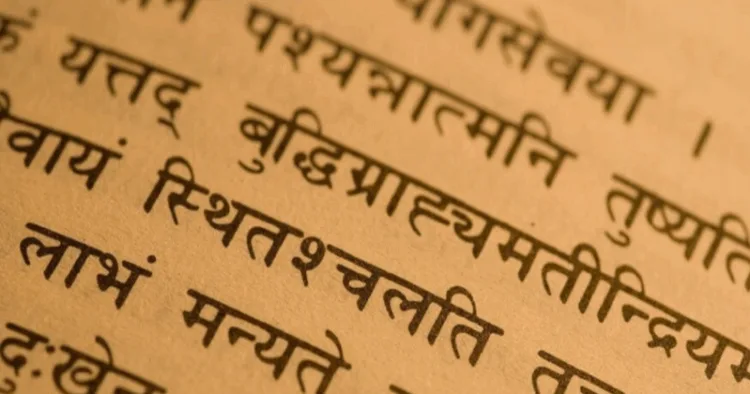 योगसेवया ।
पश्यन्नात्मनि तुष्यति
यत्तद् बुद्धिग्राह्यमतीन्द्रियम
वायं स्थितश्चलति
लाभं मन्यते
दुःखेन